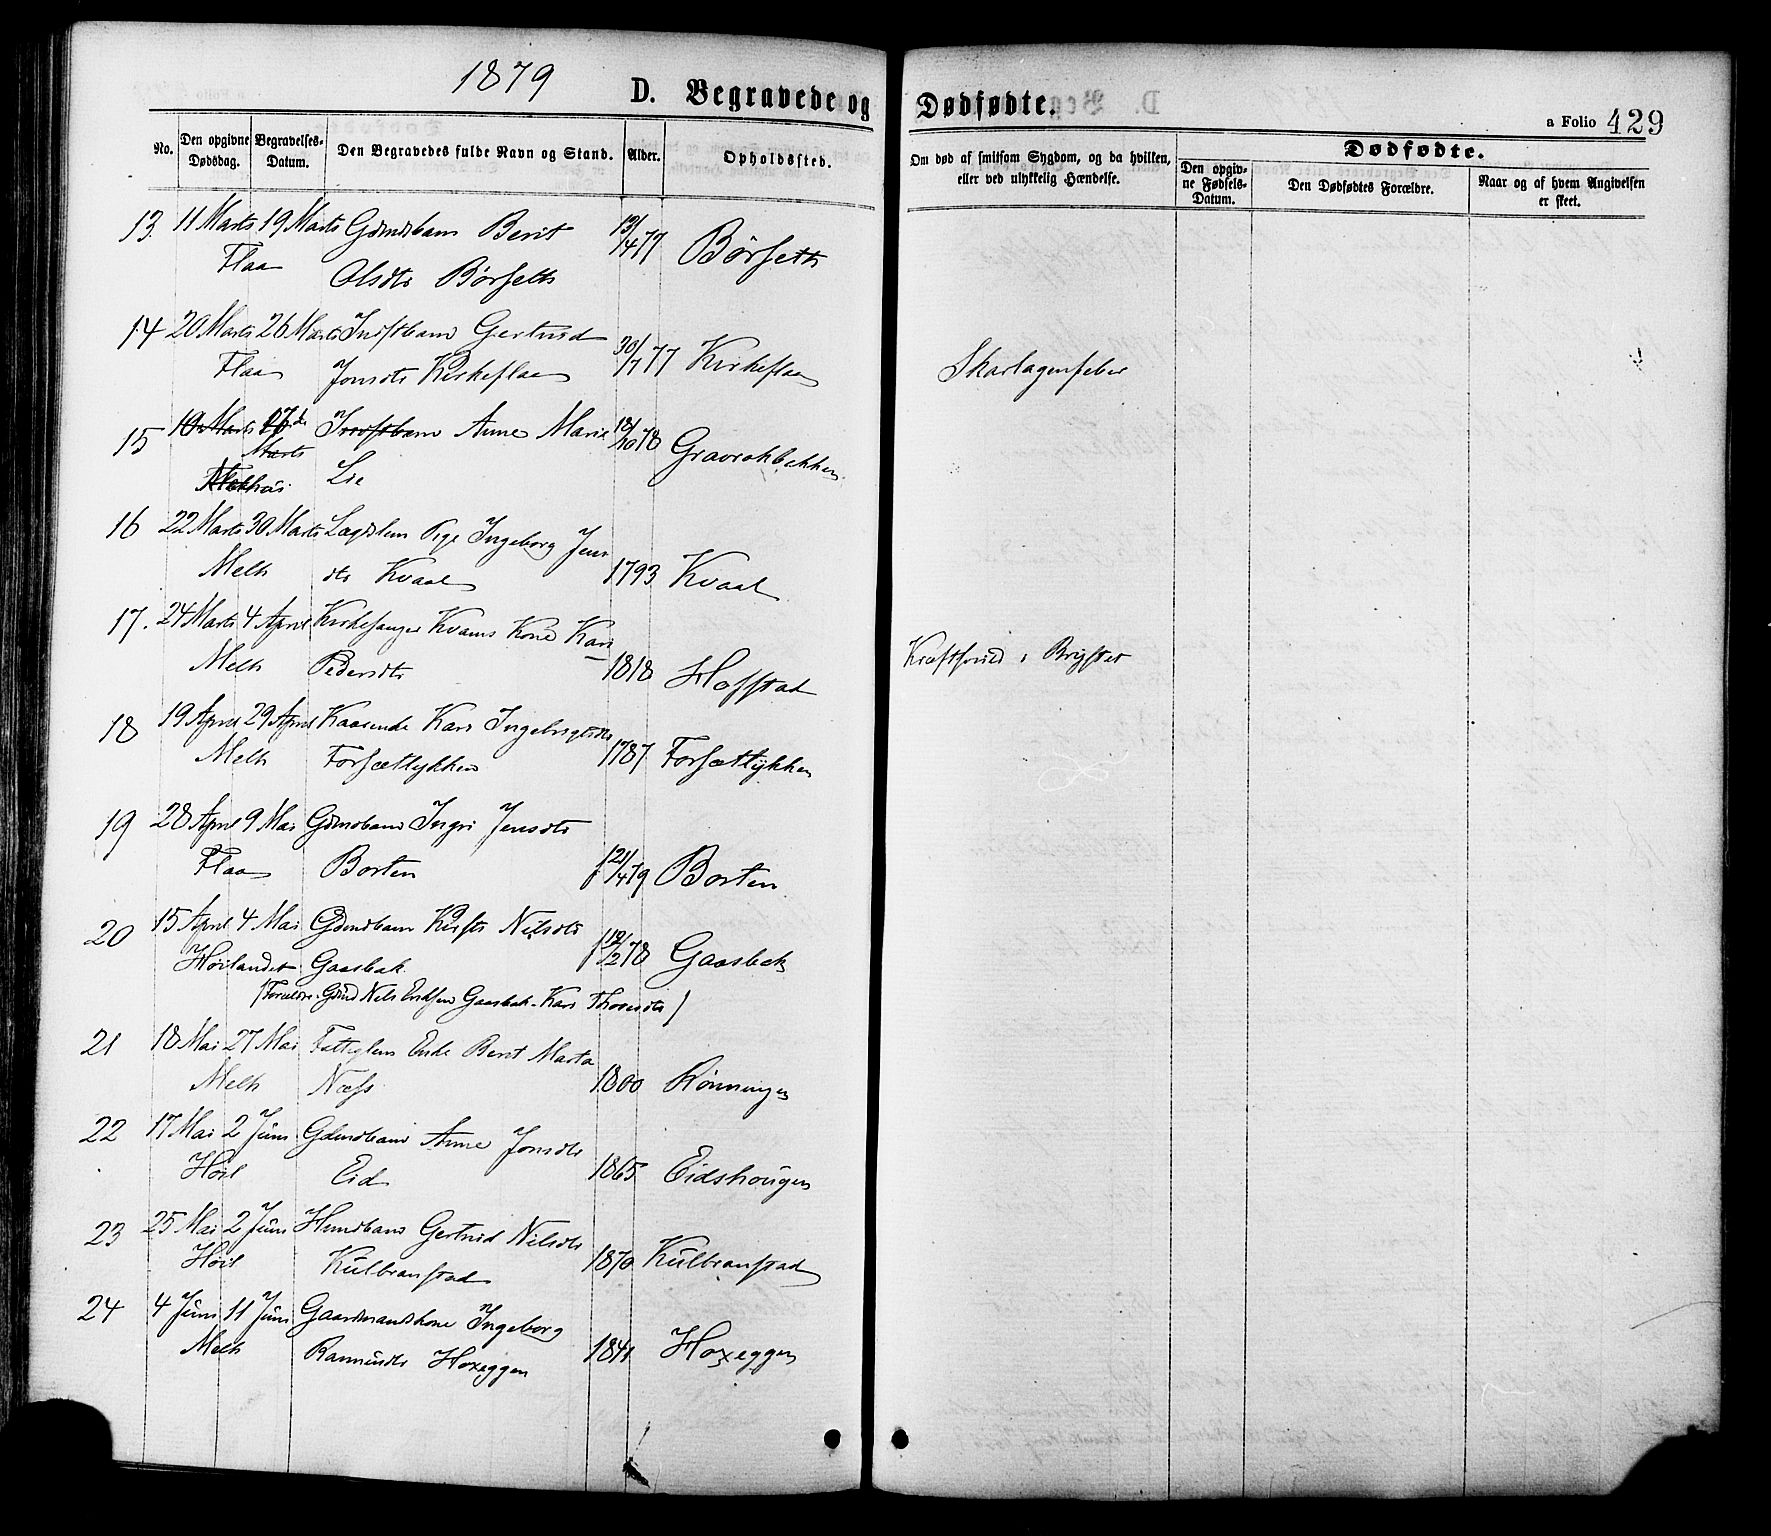 1879
D. Begravede og Dødfødte.
a Folio 429
No. Den opgivne Dødsdag. Begravelses-Datum. Den Begravedes fulde Navn og Stand. Alder. Opholdssted. Om død af smitsom Sygdom, og da hvilken, eller ved ulykkelig Hændelse. Dødfødte.
Den opgivne Fødsels-Datum. Den Dødfødtes Forældre. Naar og af hvem Angivelsen er skeet.
13. 11 Marts 19 Marts Gdmdsbarn Berit 13/4 77 Børseth
Flaa Olsdtr Børseth
14 20 Marts 26 Marts Indstbarn Gertrud 30/7 77 Kirkeflaa Skarlagensfeber
Flaa Jonsdtr Kirkeflaa
15 10 Marts 27de Marts Indstbarn Anne Marie 18/10 78 Gravrokbakken
Lie
16 22 Marts 30 Marts Lægdslem Pige Ingeborg Jens
Melh dtr Kvaal 1793 Kvaal
17. 24 Marts 4 April Kirkesanger Kvams Kone Kari
Melh Pedersdtr 1818 Hofstad Kræftsvuld i Brystet
18 19 April 29 April Kaarenke Kari Ingebrigtsdtr
Melh Forsætlykken 1787 Forsætlykken
19 28 April 9 Mai Gdmdsbarn Ingri Jensdtr
Flaa Borten 21/4 79 Borten
20 15 April 4 Mai Gdmdbarn Kirsti Nilsdtr
Høilandet Gaasbak 12/2 78 Gaasbak
(Forældre: Gdmd Nils Eriksen Gaasbak - Kari Thoresdtr)
21 18 Mai 27 Mai Fattiglem Enke Berit Marta
Melh Næss 1800 Rønningen
22 17 Mai 2 Juni Gdmdsbarn Anne Jonsdtr
Høil Eid 1865 Eidshougen
23 25 Mai 2 Juni Husmdbarn Gertrud Nilsdtr
Høil Kulbranstad 1870 Kulbranstad
24 4 Juni 11 Juni Gaardmandskone Ingeborg
Melh Rasmusdtr Hoxeggen 1841 Hoxeggen